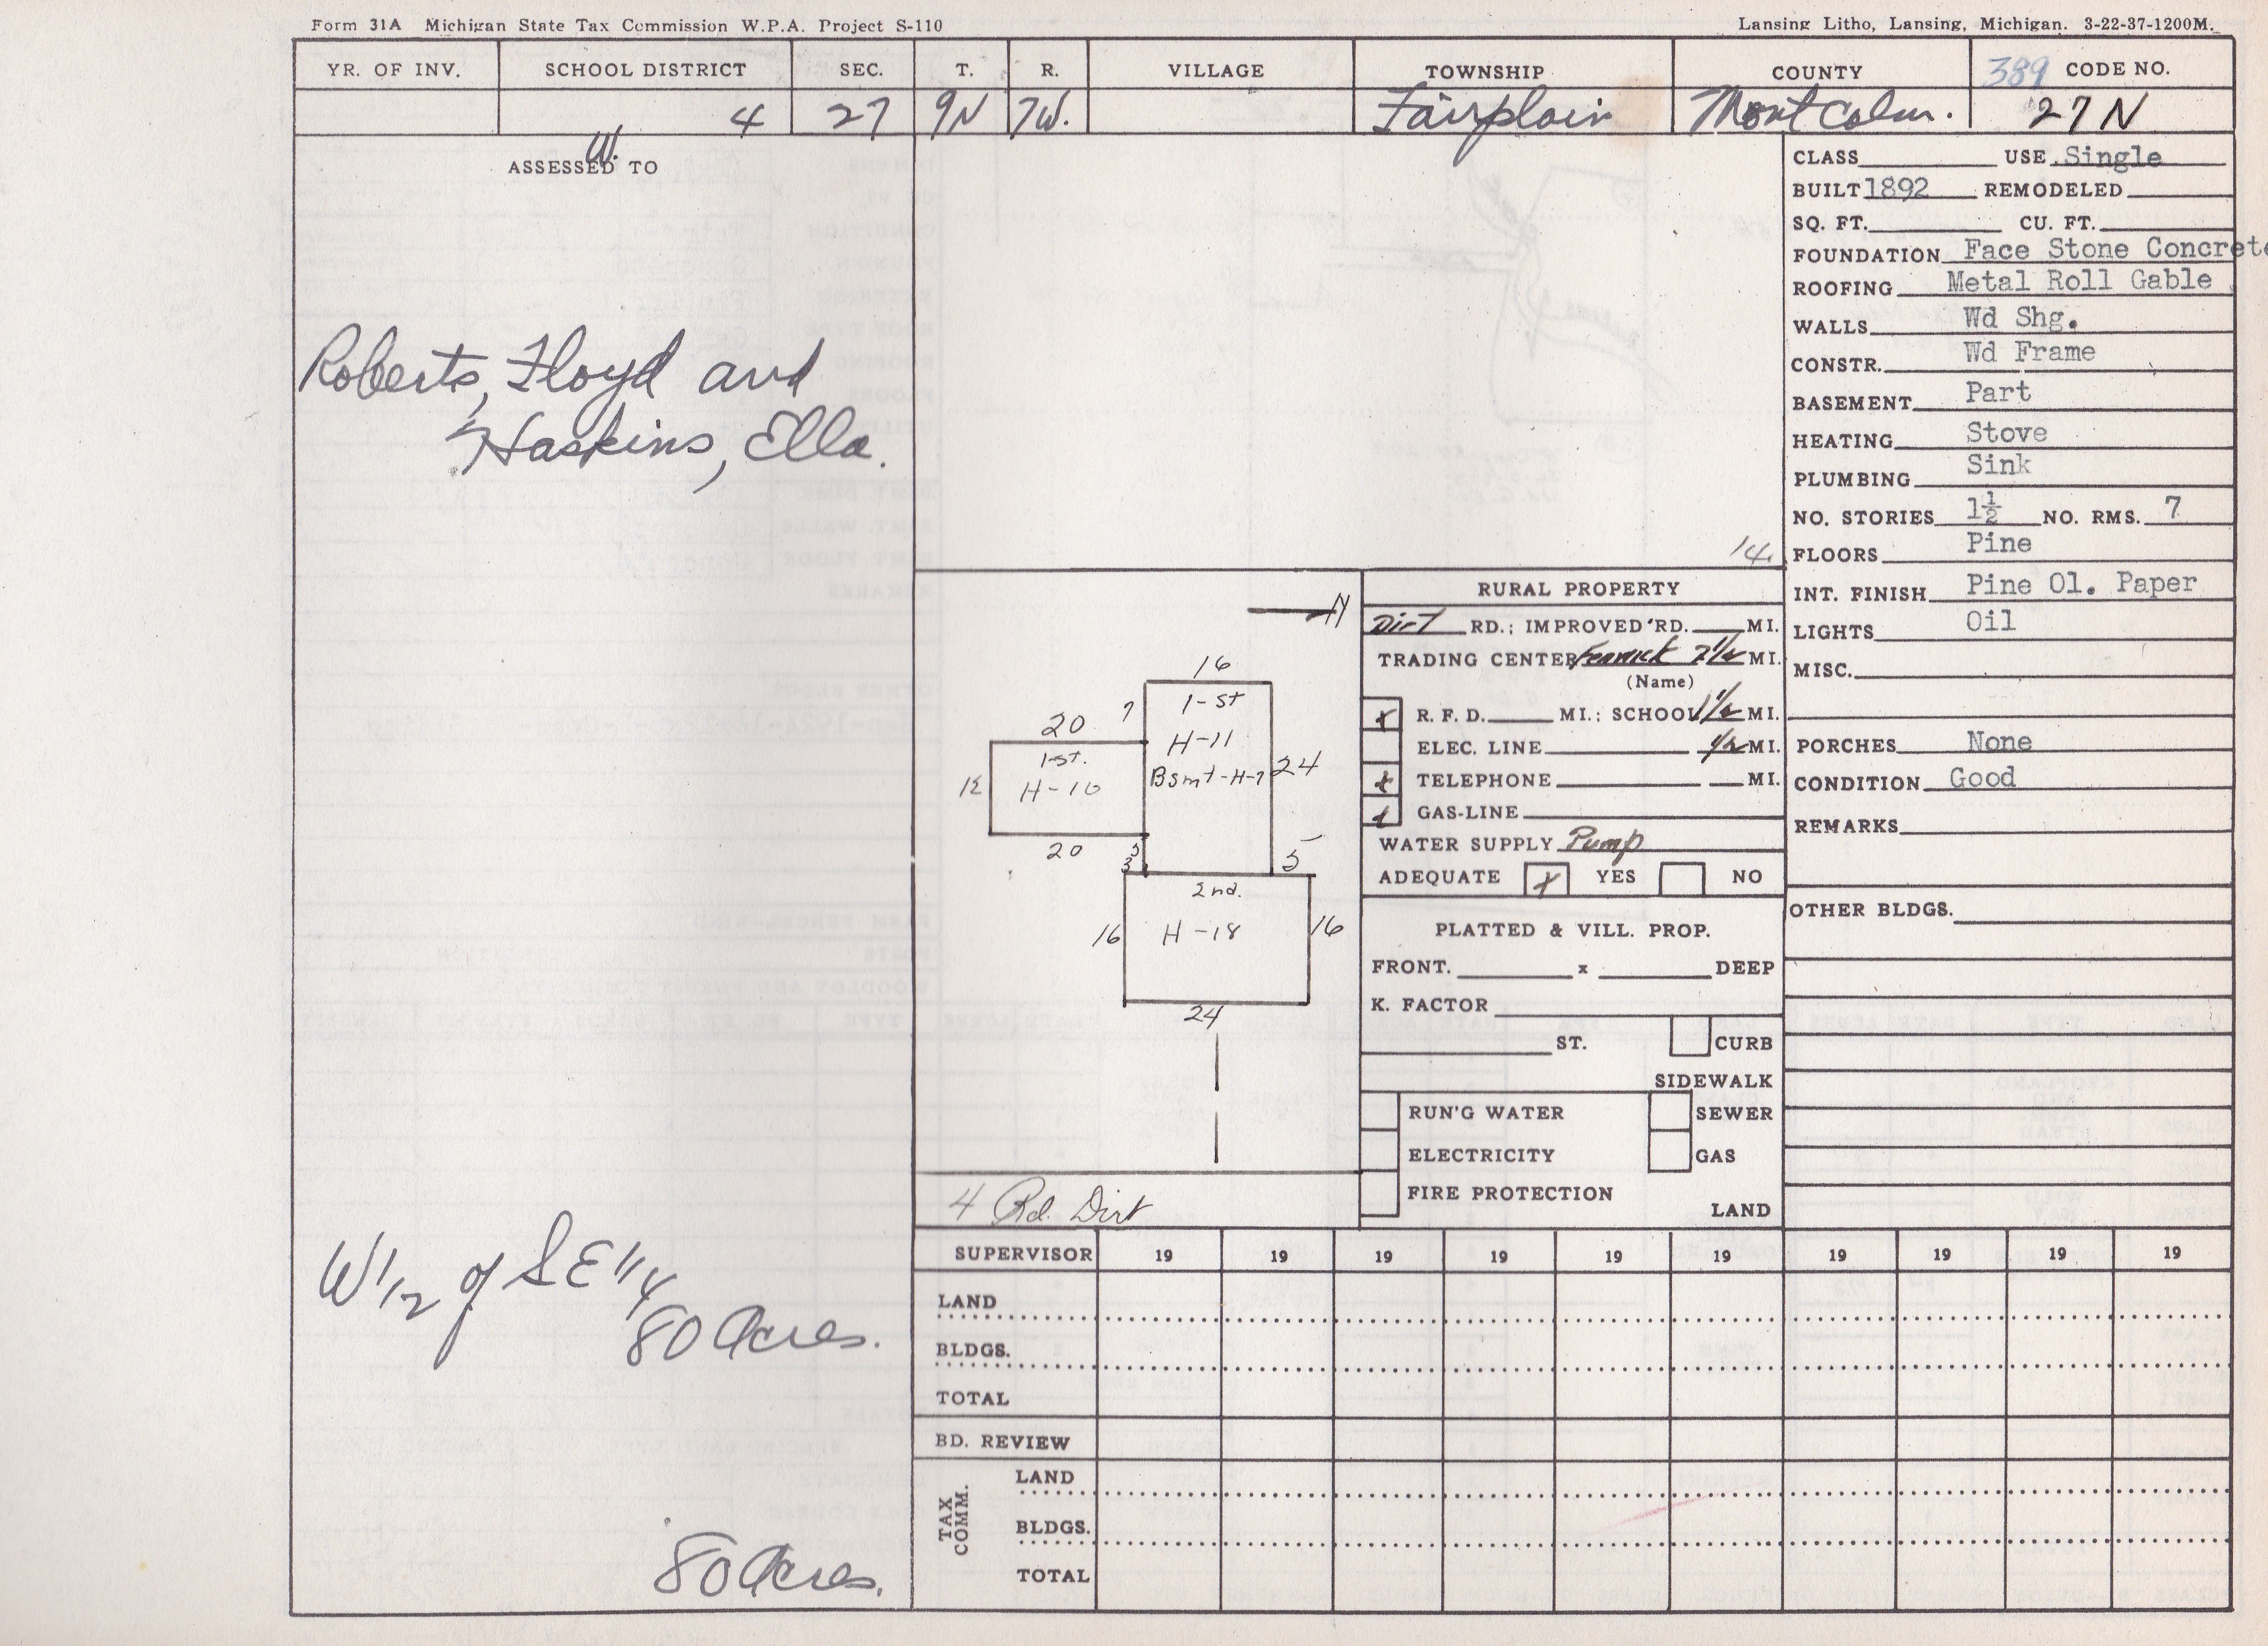 Form 31A Michigan State Tax Commission W.P.A. Project S-110
Lansing Litho, Lansing, Michigan. 3-22-37-1200M.
YR. OF INV. SCHOOL DISTRICT SEC. T. R. VILLAGE TOWNSHIP COUNTY 389 CODE NO.
4 27 9N 7W. Fairplain Montcalm. 27 N
W.
ASSESSED TO
Roberts, Floyd and
Haskins, Ella.
W 1/2 of S E 1/4
80 Acres.
80 Acres.
14.
N
16
1-St
H-11
Bsmt-H-7
24
7
20
1-st.
H-10
12
20
5
3
5
2nd.
H-18
16
16
24
4 Rd. Dirt
RURAL PROPERTY
Dirt RD.; IMPROVED RD. MI.
TRADING CENTER Fenwick 2 1/2 MI.
(Name)
x R. F. D. MI.; SCHOOL 1/2 MI.
ELEC. LINE 1/2 MI.
x TELEPHONE MI.
x GAS-LINE
WATER SUPPLY Pump
ADEQUATE x YES NO
PLATTED & VILL. PROP.
FRONT. x DEEP
K. FACTOR
ST. CURB
SIDEWALK
RUN'G WATER SEWER
ELECTRICITY GAS
FIRE PROTECTION
LAND
CLASS USE Single
BUILT 1892 REMODELED
SQ. FT. CU. FT.
FOUNDATION Face Stone Concrete
ROOFING Metal Roll Gable
WALLS Wd Shg.
CONSTR. Wd Frame
BASEMENT Part
HEATING Stove
PLUMBING Sink
NO. STORIES 1½ NO. RMS. 7
FLOORS Pine
INT. FINISH Pine Ol. Paper
LIGHTS Oil
MISC.
PORCHES None
CONDITION Good
REMARKS
OTHER BLDGS.
SUPERVISOR 19 19 19 19 19 19 19 19 19 19
LAND
BLDGS.
TOTAL
BD. REVIEW
TAX COMM.
LAND
BLDGS.
TOTAL